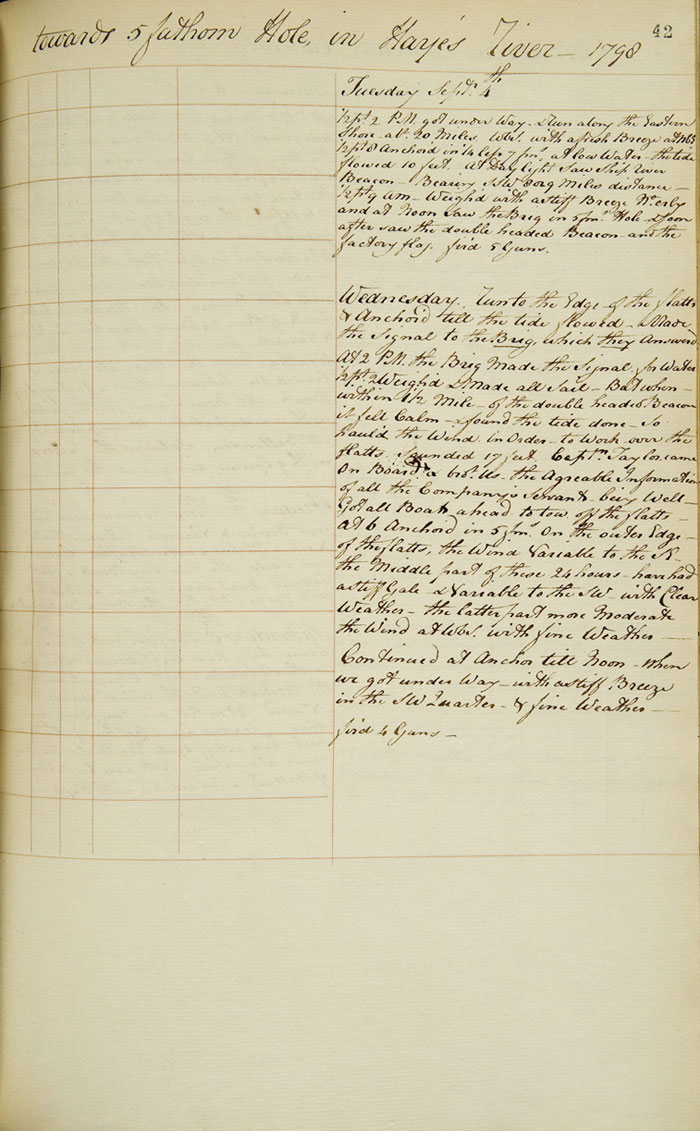 42
towards 5 fathom Hole, in Hayes River — 1798
Tuesday Septr. 4th
½ pt 2 P.M. got under Way. & Run along the Eastern
Shore abt. 20 Miles. WbS. with a fresh Breeze at
½ pt 8 Anchord in ¼ less 7 fms. at low Water — the tide
flowed 10 feet. At Day light Saw Ship River
Beacon — Bearing SSW 8 or 9 Miles distance —
½ pt 9 am — Weigh'd with a stiff Breeze Nt.erly
and at Noon saw the Brig in 5 fm. Hole & soon
after saw the double headed Beacon and the
factory flag. fir'd 5 Guns.
Wednesday. Run to the Edge of the flatts
& Anchor'd till the tide flowed — Made
the Signal to the Brig, which they Answerd
At 2 P.M. the Brig Made the Signal for Water
½ pt 2 Weigh'd & Made all Sail — But when
within 1½ Mile — of the double headed Beacon
it fell Calm — & found the tide done — So
hauld the Wind in Order — to Work over the
flatts — Sounded 17 feet Captn. Taylor came
On Board & brot. Us — the Agreable Information
of all the Company's Servants being Well —
Got all Boats ahead to tow off the flatts —
at 6 Anchord in 5 fms. On the outer Edge —
of the flatts, the Wind Variable to the SE —
the Middle part of these 24 hours — have had
a stiff Gale — & Variable to the SW. with Clear
Weather — the latter part more Moderate
the Wind at WbS. with fine Weather —
Continued at Anchor till Noon — When
we got under Way — with a stiff Breeze
in the SW Quarter — & fine Weather —
fir'd 4 Guns —